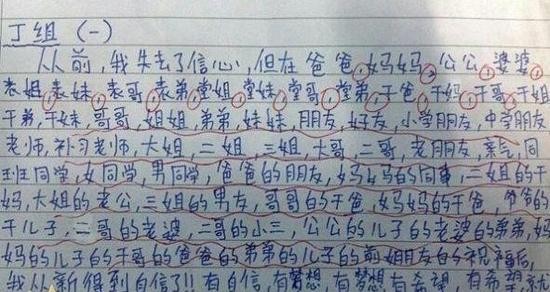 丁组(一)
从前,我失去了信心,但在爸爸,妈妈,公公,婆婆,
表姐,表妹,表哥,表弟,堂姐,堂妹,堂哥,堂弟,干爸,干妈,干哥,干姐
干弟,干妹,哥哥,姐姐,弟弟,妹妹,朋友,好友,小学朋友,中学朋友
老师,补习老师,大姐,二姐,三姐,大哥,二哥,老朋友,亲气,同
班同学,女同学,男同学,爸爸的朋友,妈妈的同事,二姐的干
妈,大姐的老公,三姐的男友,哥哥的干爸,妈妈的干爸,爷爷的
干儿子,二哥的老婆,二哥的小三,公公的儿子的老婆的弟弟,妈
妈的儿子的干哥的爸爸的弟弟的儿子的前姐友的祝福后,
我从新得到自信了!!有自信,有梦想,有梦想有希望,有希望就